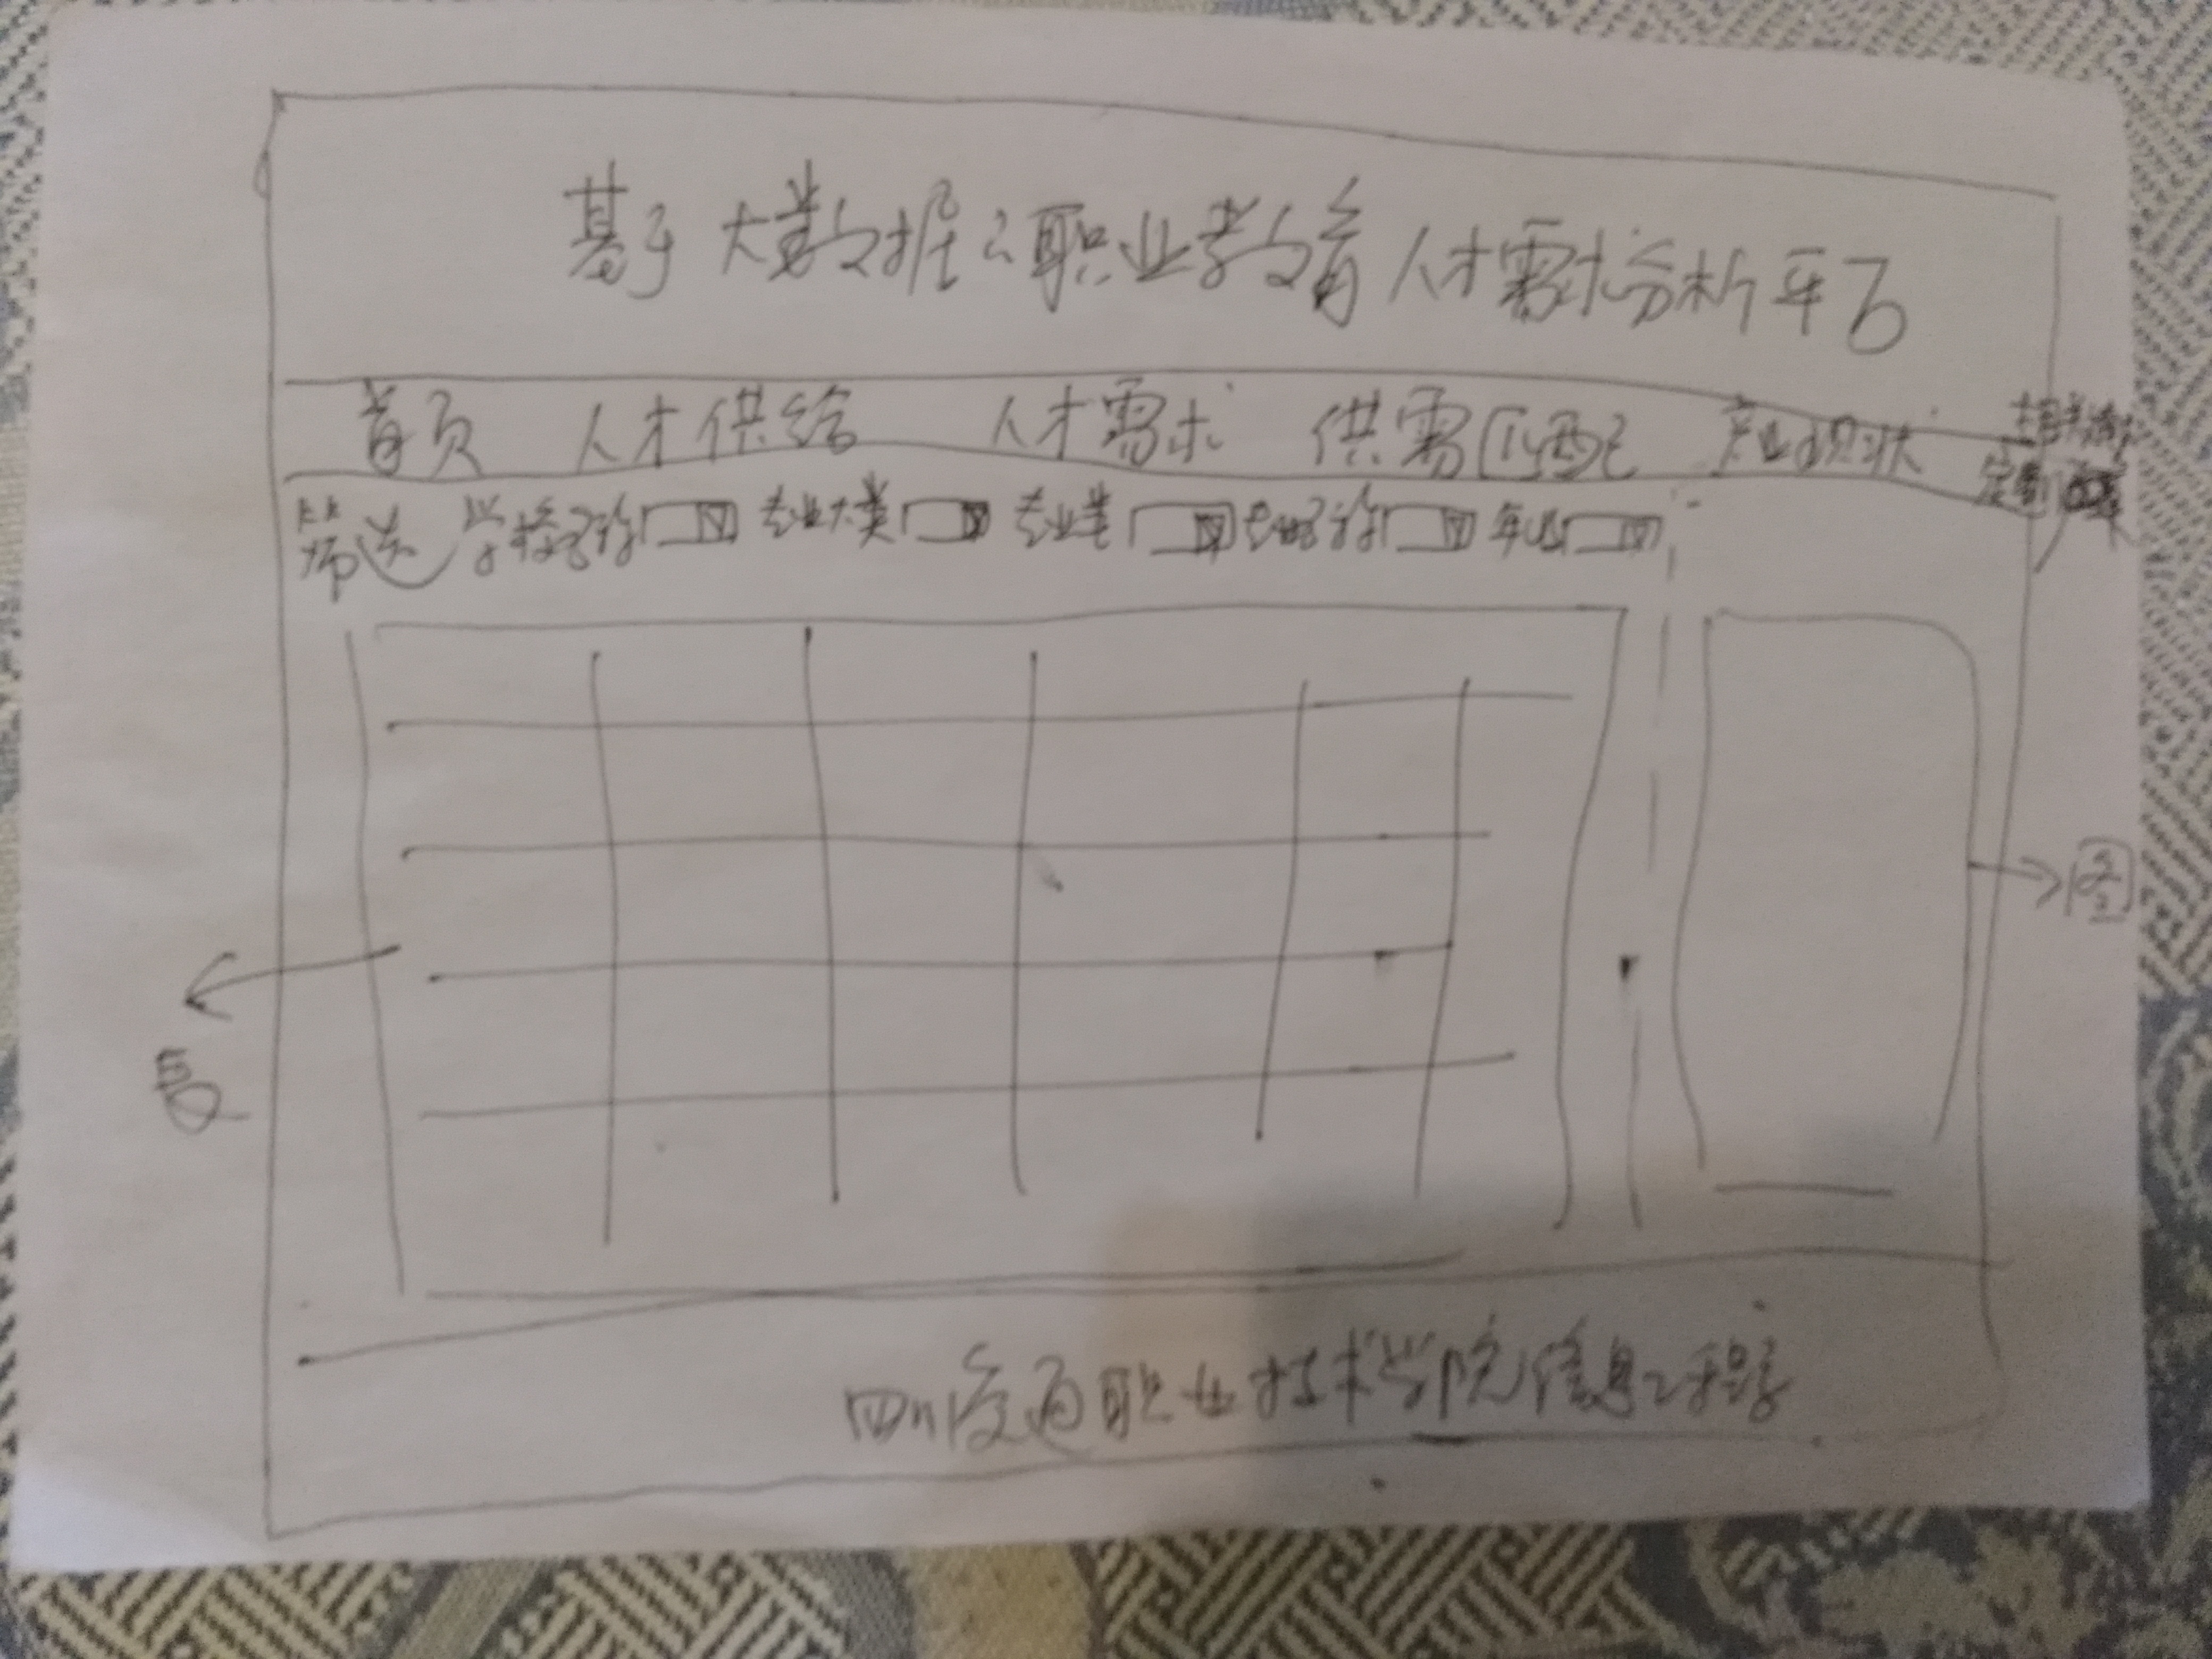 基于大数据之职业教育人才需求分析平台
首页 人才供给 人才需求 供需匹配 产业现状
筛选 学校名称 专业大类 专业类 专业名称 年份
图
表
四川交通职业技术学院信息工程系